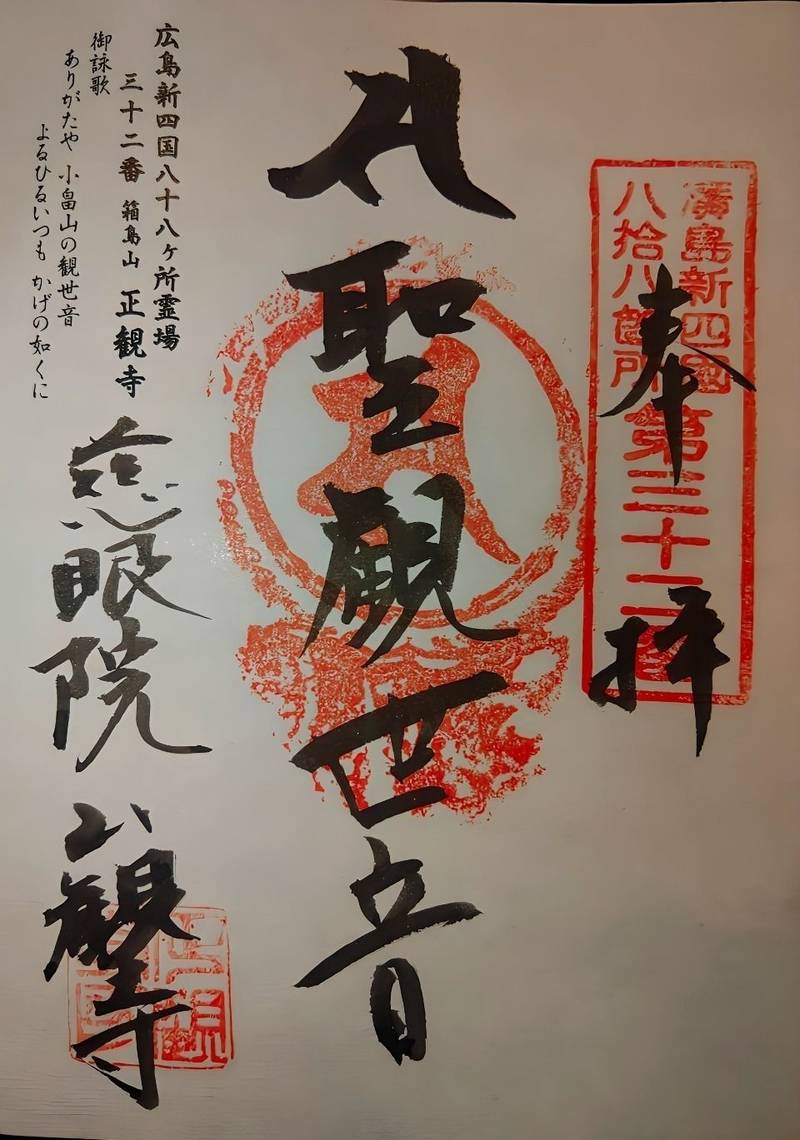 奉拝
廣島新四國
八拾八箇所
第三十二番
聖観世音
広島新四国八十八ヶ所霊場
三十二番 箱島山 正観寺
御詠歌
ありがたや 小畠山の観世音
よるひるいつも かげの如くに
慈眼院
正観寺